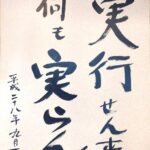 実行せん
何も実ら
平成二十八年九月